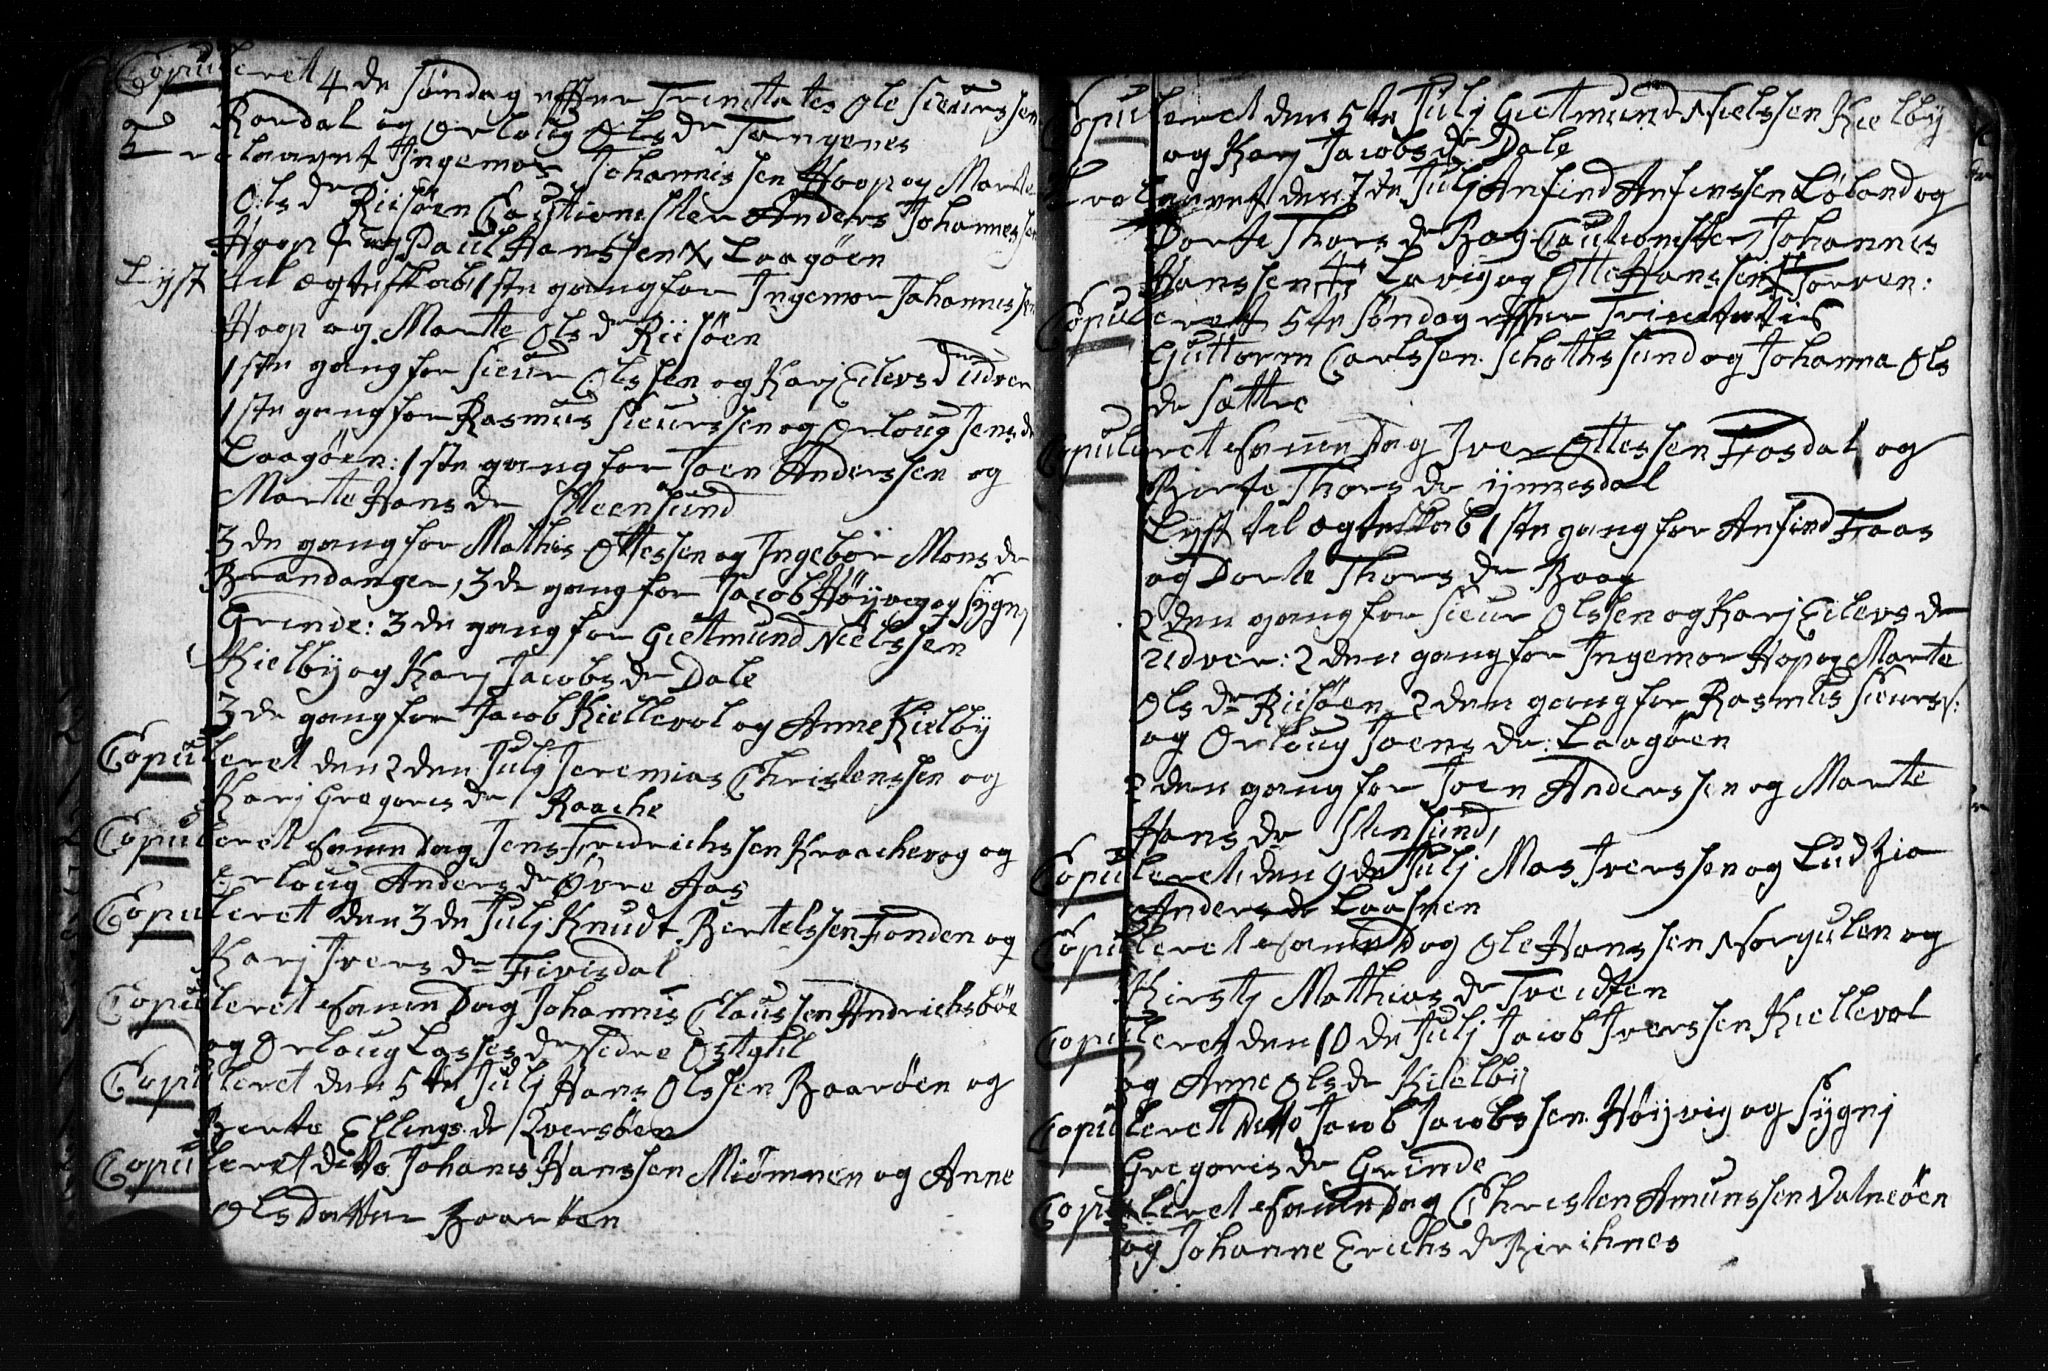 Copuleret 4de Søndag effter Trinitatis Ole Sieurssen
Rordal og Orloug Olsdr Tangenes
Trolaavet Ingemor Johannissen Hoop og Marte
Olsdr Riisøen Cautionister Anders Johannessen
Hoop og Paul Hanssen Laagøen
Lyst til ægteskab 1ste gang for Ingemor Johannissen
Hoop og Marte Olsdr Riisøen
1ste gang for Sieur Olssen og Karj Eilersdr Udver
1ste gang for Rasmus Sieurssen og Orloug Jensdr
Laagøen: 1ste gang for Joen Anderssen og
Marte Hansdr Steensund
3de gang for Mathis Ottessen og Ingebør Monsdr
Brandanger, 3de gang for Jacob Høyvig og Sygnj
Grinde: 3de gang for Gietmund Nielssen
Kielby og Karj Jacobsdr Dale
3de gang for Jacob Kiellevol og Anne Kielby
Copuleret den 2den Julj Jeremias Christenssen og
Karj Gregorisdr Raache
Copuleret samme Dag Jens Fredrichssen Kraachevog og
Orloug Andersdr Øvre Aas
Copuleret den 3de Julj Knudt Bertelssen Fonden og
Karj Iversdr Fivisdal
Copuleret samme Dag Johannis Claussen Andrichsbøe
og Orloug Lassesdr Nedre Østgul
Copuleret den 5te Julj Hans Olssen Baarøen og
Berte Ellingsdr Qversøen
Copuleret ditto Johanis Hanssen Miømnen og Anne
Olsdatter Baarøen
Copuleret den 5te Julj Gietmund Nielssen Kielby
og Karj Jacobsdr Dale
Trolaavet den 7de Julj Anfind Anfinssen Løland og
Dorte Thorsdr Bog: Cautionister Johannis
Hanssen Lavig og Otte Hanssen Torven:
Copuleret 5te Søndag effter Trinitatis
Guttorm Carlssen Schothssund og Johanna Ols
dr Sættre
Copuleret samme Dag Iver Ottessen Fosdal og
Birte Thorsdr Ynnesdal
Lyst til ægteskab 1ste gang for Anfind Faas
og Dorte Thorsdr Boog
2den gang for Sieur Olssen og Karj Eilersdr
Udver: 2den gang for Ingemor Hop og Marte
Olsdr Riisøen 2den gang for Rasmus Sieurs:
og Orloug Joensdr Laagøen
2den gang for Joen Anderssen og Marte
Hansdr Stensund,
Copuleret den 9de Julj Mos Iverssen og Ludzia
Andersdr Laasnen
Copuleret samme Dag Ole Hanssen Norgulen og
Kirstj Mathiasdr Tveidten
Copuleret den 10de Julj Jacob Iverssen Kiellevol
og Anne Olsdr Kielby
Copuleret ditto Jacob Jacobssen Høyvig og Sygnj
Gregorisdr Grinde
Copuleret samme Dag Christen Amunssen Valneøen
og Johanne Erichsdr Birchnes